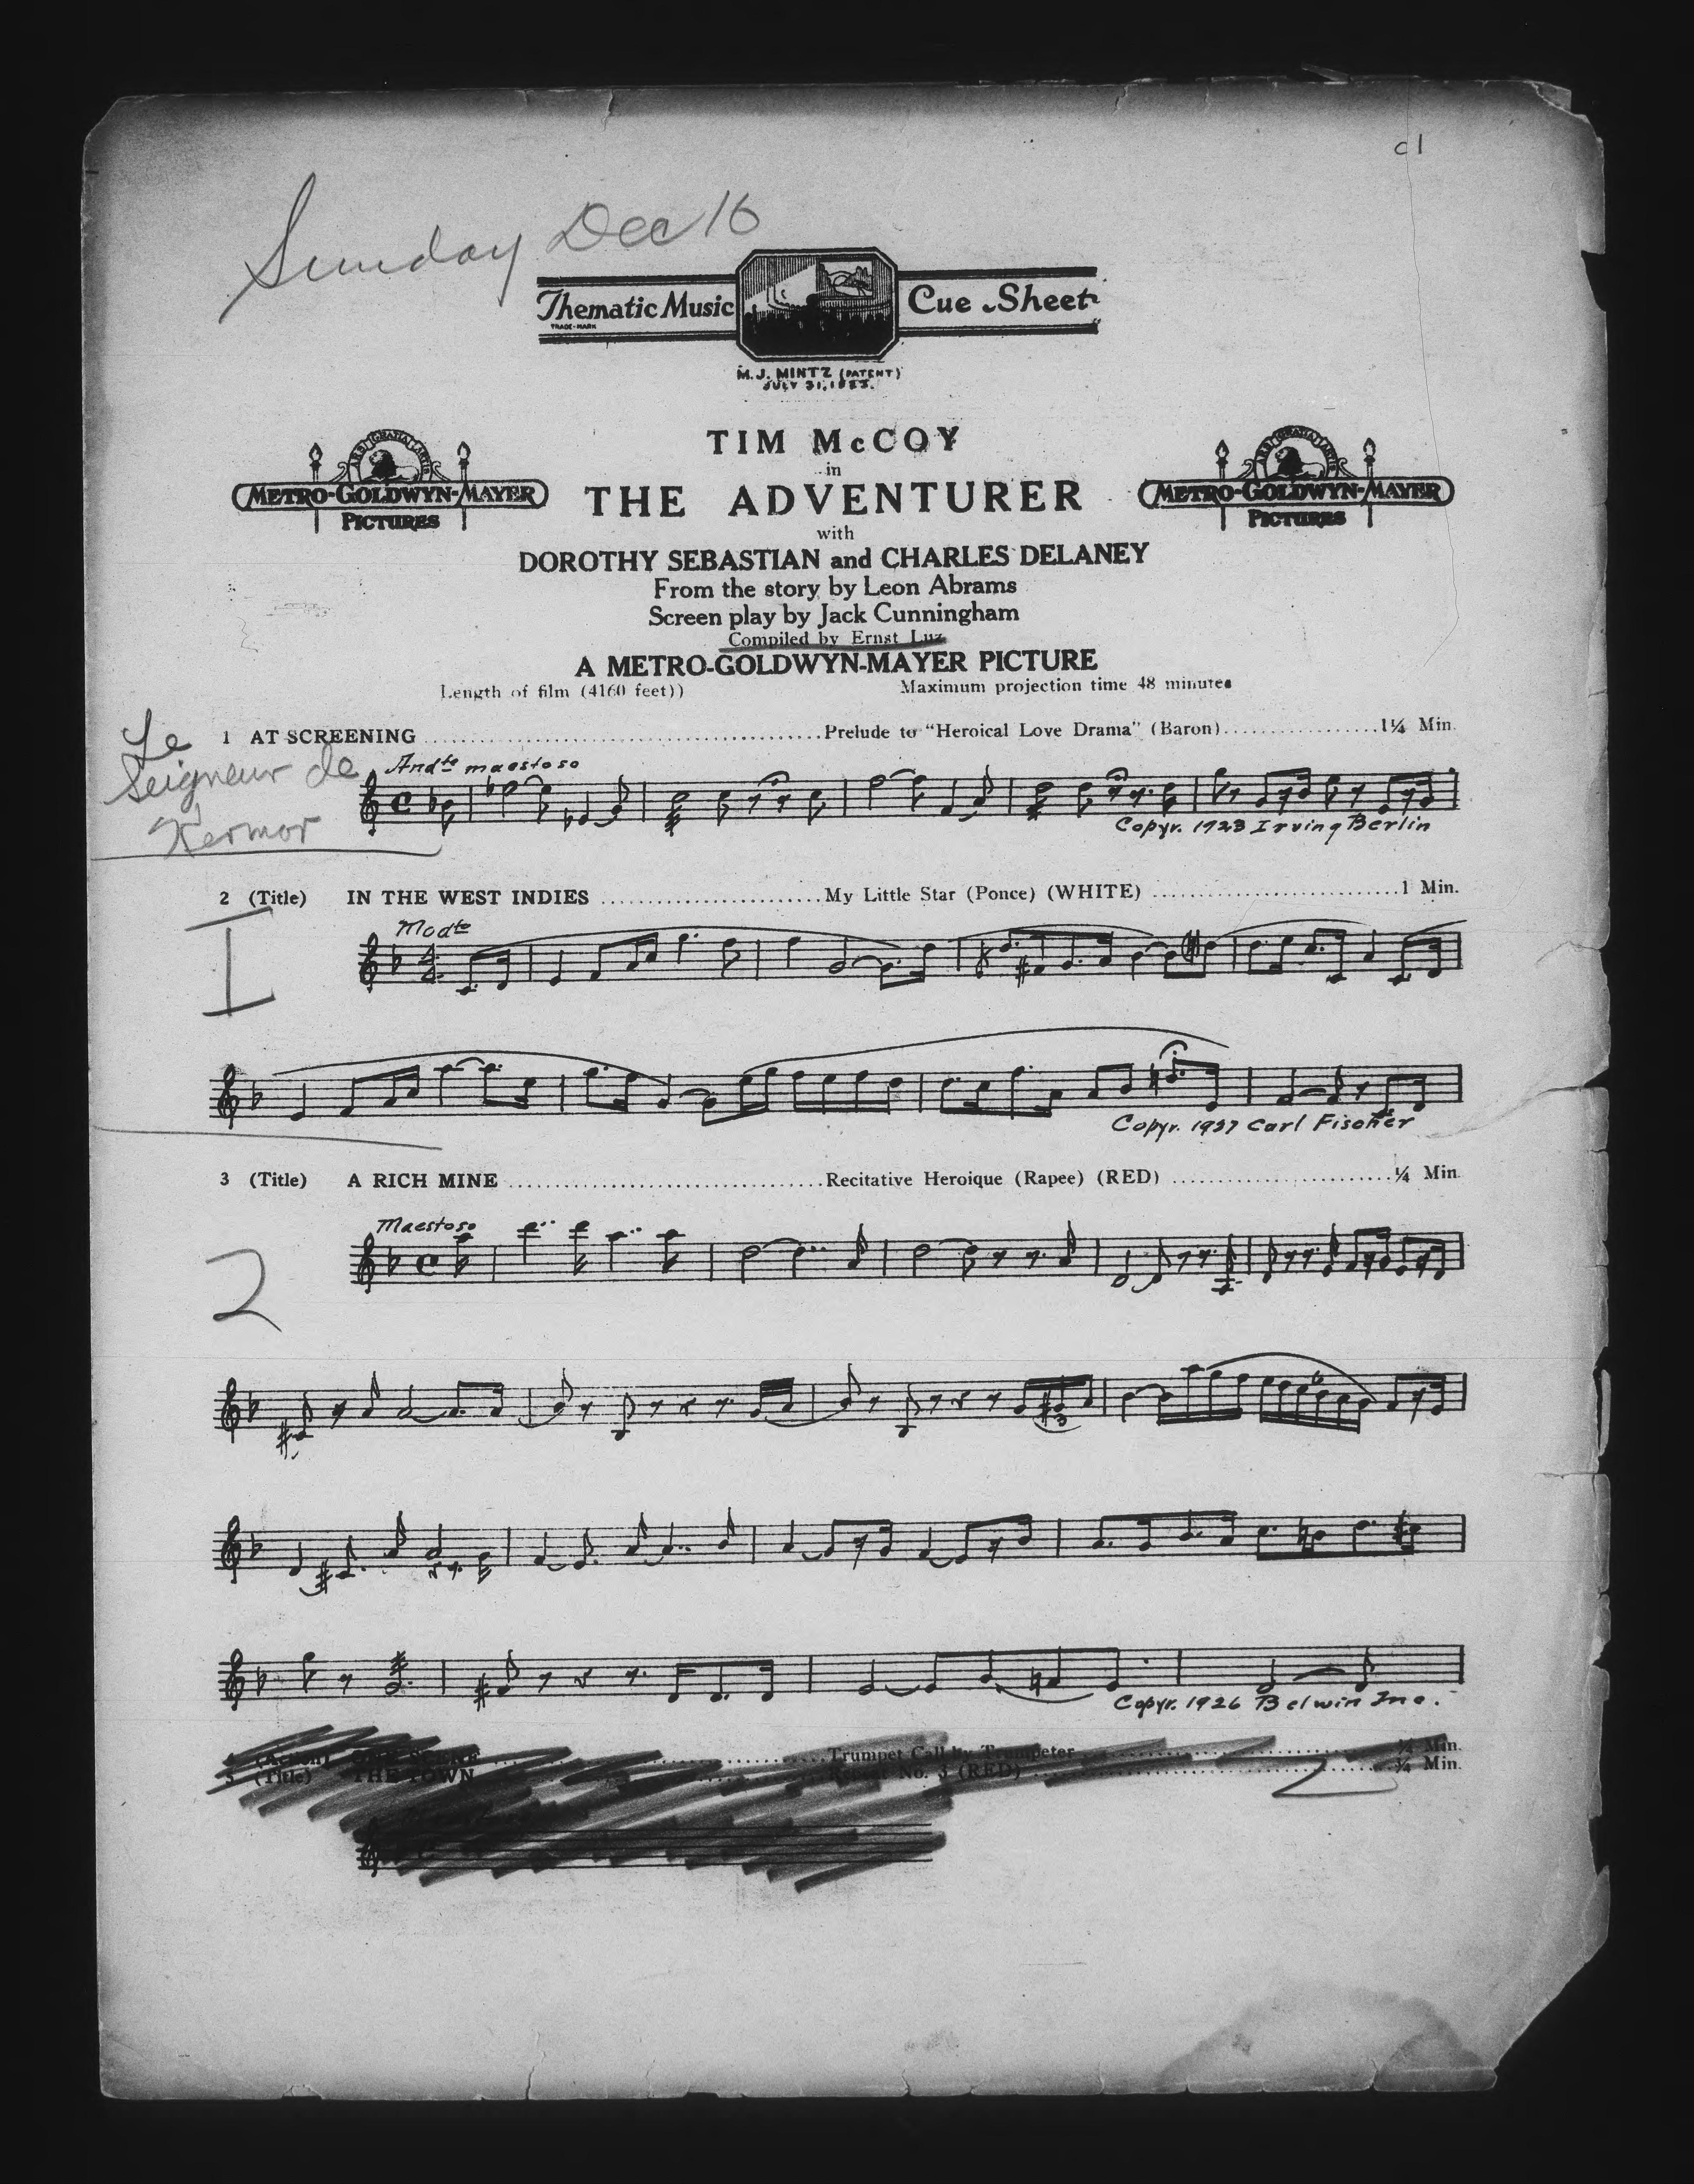 c1
Sunday Dec 16
Thematic Music Cue Sheet
TRADE-MARK
M. J. MINTZ (PATENT)
JULY 31, 1923.
TIM McCOY
in
THE ADVENTURER
METRO-GOLDWYN-MAYER
PICTURES
METRO-GOLDWYN-MAYER
PICTURES
with
DOROTHY SEBASTIAN and CHARLES DELANEY
From the story by Leon Abrams
Screen play by Jack Cunningham
Compiled by Ernst Luz
A METRO-GOLDWYN-MAYER PICTURE
Length of film (4160 feet)) Maximum projection time 48 minutes
Le
Seigneur de
Kermor
1 AT SCREENING ........ Prelude to "Heroical Love Drama" (Baron) ........ 1¼ Min.
Andte maestoso
Copyr. 1923 Irving Berlin
2 (Title) IN THE WEST INDIES ........ My Little Star (Ponce) (WHITE) ........ 1 Min.
I
Modto
Copyr. 1927 Carl Fischer
3 (Title) A RICH MINE ........ Recitative Heroique (Rapee) (RED) ........ ¼ Min.
2
Maestoso
6
3
Copyr. 1926 Belwin Inc.
4 (Action) SCENE ........ Trumpet Call by Trumpeter ........ ¼ Min.
5 (Title) THE TOWN ........ No. 3 (RED) ........ ¾ Min.
2